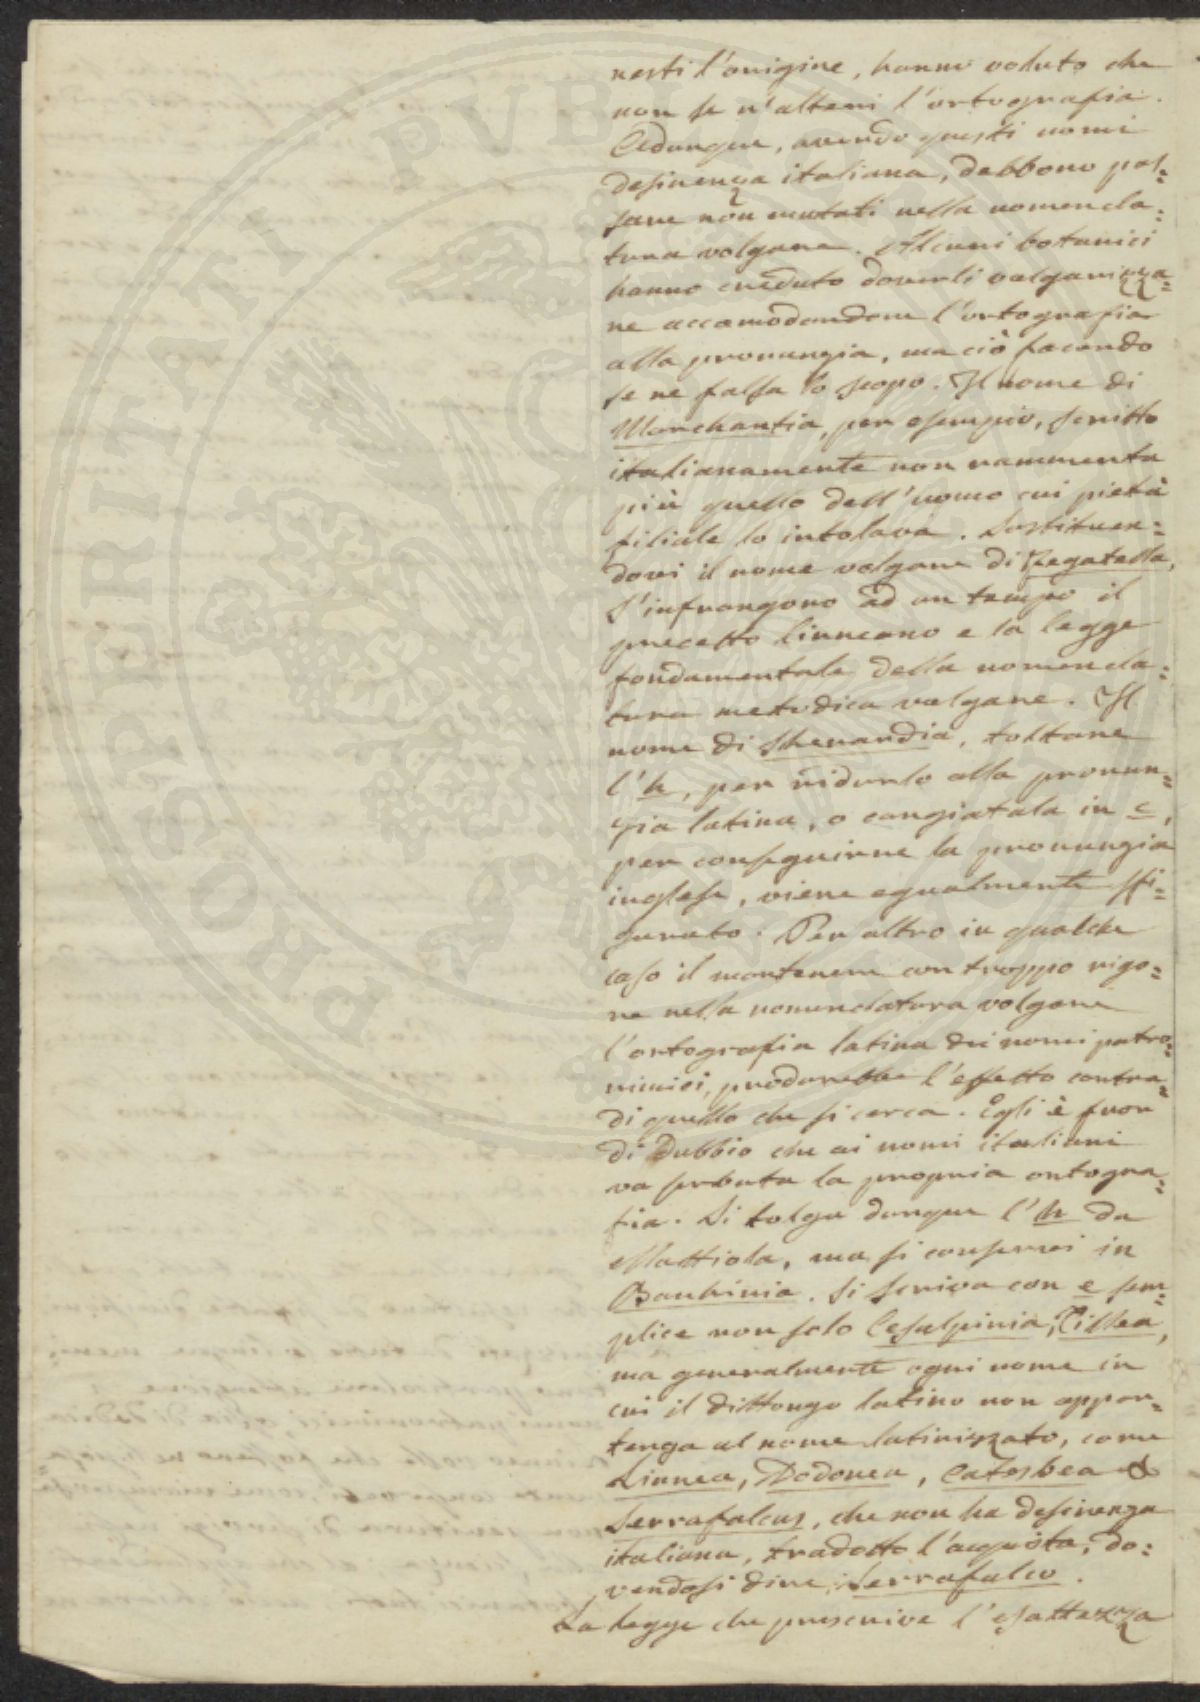 nesti l'origine, hanno voluto che
non se n'alteri l'ortografia.
Eddunque, avendo questi nomi
desinenza italiana, debbono pas=
sare non mutati nella nomencla=
tura volgare. Alcuni botanici
hanno creduto doverli volgarizza=
re accomodandone l'ortografia
alla pronunzia, ma ciò facendo
se ne falsa lo scopo. Il nome di
Marchantia, per esempio, scritto
italianamente non rammenta
più quello dell'uomo cui pietà
filiale lo intolava. Sostituen=
dovi il nome volgare di Fegatella,
s'infrangono ad un tempo il
precetto linneano e la legge
fondamentale della nomencla=
tura metodica volgare. Il
nome di Sherardia, toltane
l'h, per ridurlo alla pronun=
zia latina, o cangiatala in c,
per conseguirne la pronunzia
inglese, viene egualmente sfi=
gurato. Per altro in qualche
caso il mantenere con troppo rigo=
re nella nomenclatura volgare
l'ortografia latina dei nomi patro=
nimici, produrebbe l'effetto contra=
di quello che si cerca. Egli è fuor
di dubbio che ai nomi italiani
va serbata la propria ortogra=
fia. Si tolga dunque l'h da
Mattiola, ma si conservi in
Bauhinia. Si scriva con e sem=
plice non solo Cesalpinia, Tillea,
ma generalmente ogni nome in
cui il dittongo latino non appar=
tenga al nome latinizzato, come
Linnea, Dodonea, Catesbea &
Serrafalcus, che non ha desinenza
italiana, tradotto l'acquista, do=
vendosi dire Serrafalco.
La legge che prescrive l'esattezza
PROSPERITATI PUBLICAE